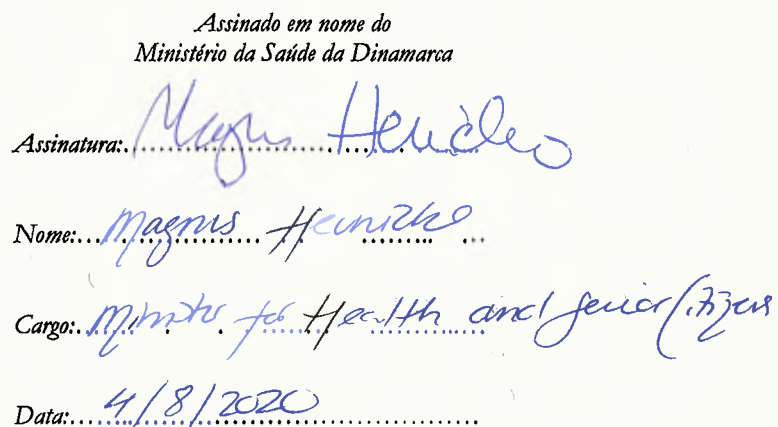 Assinado em nome do
Ministério da Saúde da Dinamarca
Assinatura: Magnus Heunicke
Nome: Magnus Heunicke
Cargo: Minister for Health and Senior Citizens
Data: 4/8/2020